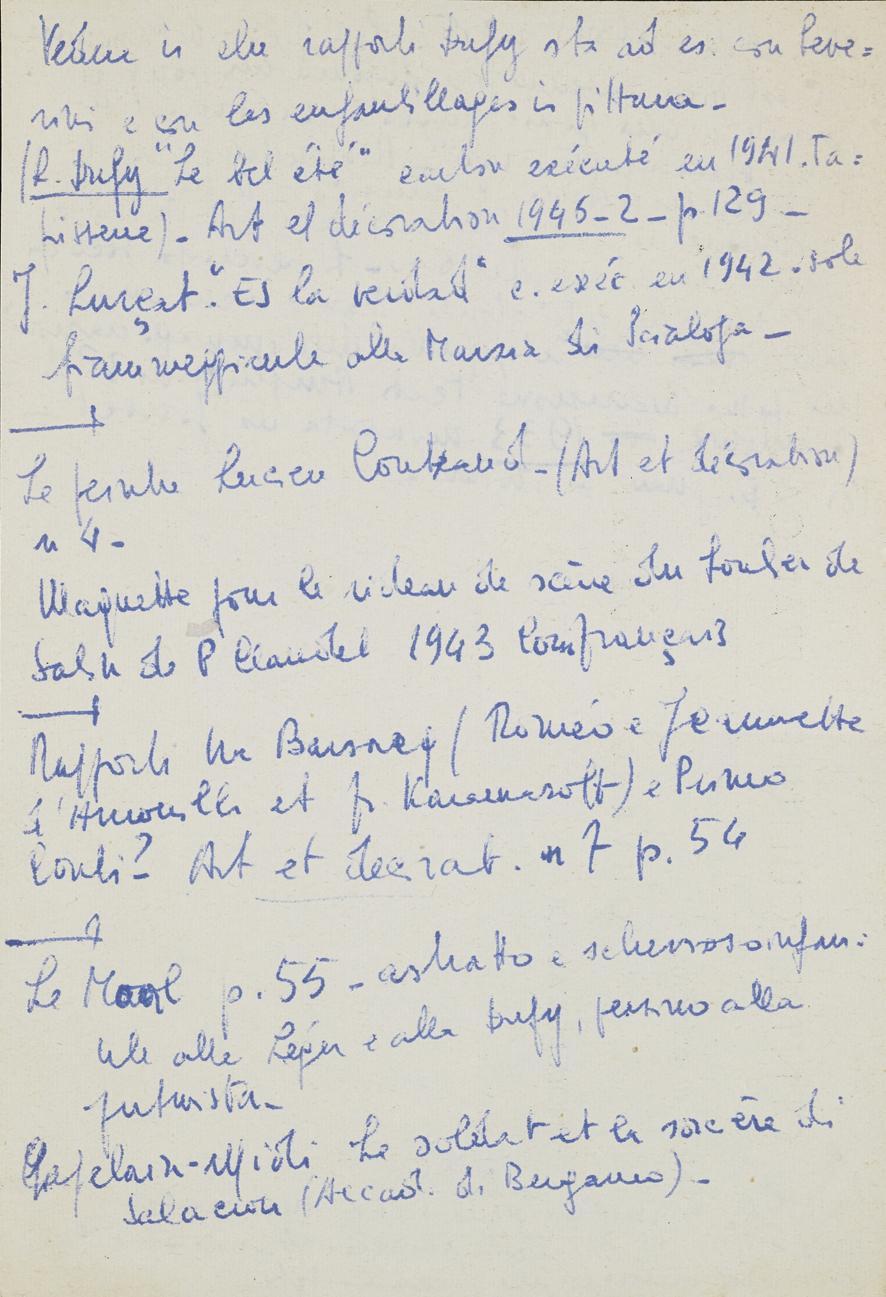 Vedere in che rapporti Dufy sta ad es. con Seve=
rini e con les enfantillages in pittura -
(R. Dufy "Le bel été" carton exécuté en 1941. Ta=
pisserie) - Art et décoration 1945-2 - p. 129 -
J. Lurçat. "Es la verdad" c. exéc en 1942. sole
fiammeggiante alla Maniera di Scialoja -
Le peintre Lucien Coutaud - (Art et décoration)
n 4 -
Maquette pour le rideau de scène du Soulier de
Satin de P Claudel 1943 Com française
Rapporti tra Barsacq (Roméo e Jeannette
d'Anouilh et fr. Karamasoff) e Primo
Conti? - Art et decorat. n 7 p. 54
Le Moal p. 55 - astratto e scherzoso infan=
tile alla Léger e alla Dufy, persino alla
futurista -
Chapelain-Midi Le soldat et la sorcière di
Salacrou (Accad. di Bergamo) -